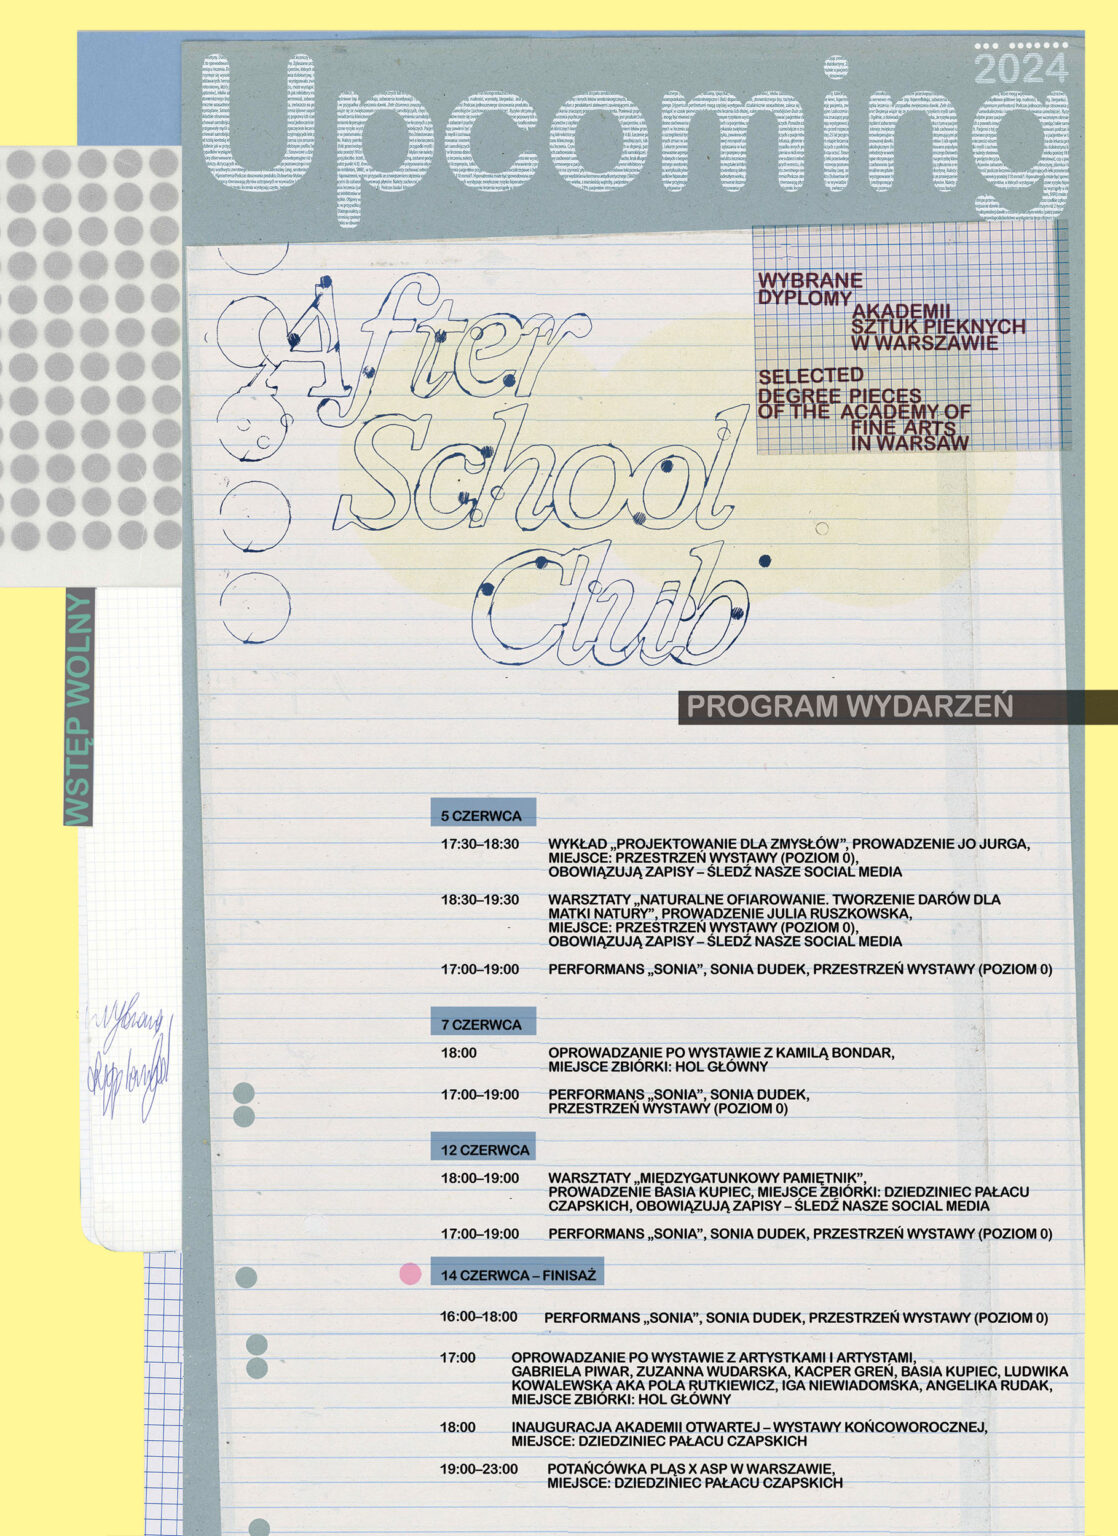 Upcoming
2024
After
School
Club
WYBRANE
DYPLOMY
AKADEMII
SZTUK PIEKNYCH
W WARSZAWIE
SELECTED
DEGREE PIECES
OF THE ACADEMY OF
FINE ARTS
IN WARSAW
WSTĘP WOLNY
PROGRAM WYDARZEŃ
5 CZERWCA
17:30–18:30 WYKŁAD „PROJEKTOWANIE DLA ZMYSŁÓW”, PROWADZENIE JO JURGA,
MIEJSCE: PRZESTRZEŃ WYSTAWY (POZIOM 0),
OBOWIĄZUJĄ ZAPISY – ŚLEDŹ NASZE SOCIAL MEDIA
18:30–19:30 WARSZTATY „NATURALNE OFIAROWANIE. TWORZENIE DARÓW DLA
MATKI NATURY”, PROWADZENIE JULIA RUSZKOWSKA,
MIEJSCE: PRZESTRZEŃ WYSTAWY (POZIOM 0),
OBOWIĄZUJĄ ZAPISY – ŚLEDŹ NASZE SOCIAL MEDIA
17:00–19:00 PERFORMANS „SONIA”, SONIA DUDEK, PRZESTRZEŃ WYSTAWY (POZIOM 0)
7 CZERWCA
18:00 OPROWADZANIE PO WYSTAWIE Z KAMILĄ BONDAR,
MIEJSCE ZBIÓRKI: HOL GŁÓWNY
17:00–19:00 PERFORMANS „SONIA”, SONIA DUDEK,
PRZESTRZEŃ WYSTAWY (POZIOM 0)
12 CZERWCA
18:00–19:00 WARSZTATY „MIĘDZYGATUNKOWY PAMIĘTNIK”,
PROWADZENIE BASIA KUPIEC, MIEJSCE ZBIÓRKI: DZIEDZINIEC PAŁACU
CZAPSKICH, OBOWIĄZUJĄ ZAPISY – ŚLEDŹ NASZE SOCIAL MEDIA
17:00–19:00 PERFORMANS „SONIA”, SONIA DUDEK, PRZESTRZEŃ WYSTAWY (POZIOM 0)
14 CZERWCA – FINISAŻ
16:00–18:00 PERFORMANS „SONIA”, SONIA DUDEK, PRZESTRZEŃ WYSTAWY (POZIOM 0)
17:00 OPROWADZANIE PO WYSTAWIE Z ARTYSTKAMI I ARTYSTAMI,
GABRIELA PIWAR, ZUZANNA WUDARSKA, KACPER GREŃ, BASIA KUPIEC, LUDWIKA
KOWALEWSKA AKA POLA RUTKIEWICZ, IGA NIEWIADOMSKA, ANGELIKA RUDAK,
MIEJSCE ZBIÓRKI: HOL GŁÓWNY
18:00 INAUGURACJA AKADEMII OTWARTEJ – WYSTAWY KOŃCOWOROCZNEJ,
MIEJSCE: DZIEDZINIEC PAŁACU CZAPSKICH
19:00–23:00 POTAŃCÓWKA PLĄS X ASP W WARSZAWIE,
MIEJSCE: DZIEDZINIEC PAŁACU CZAPSKICH